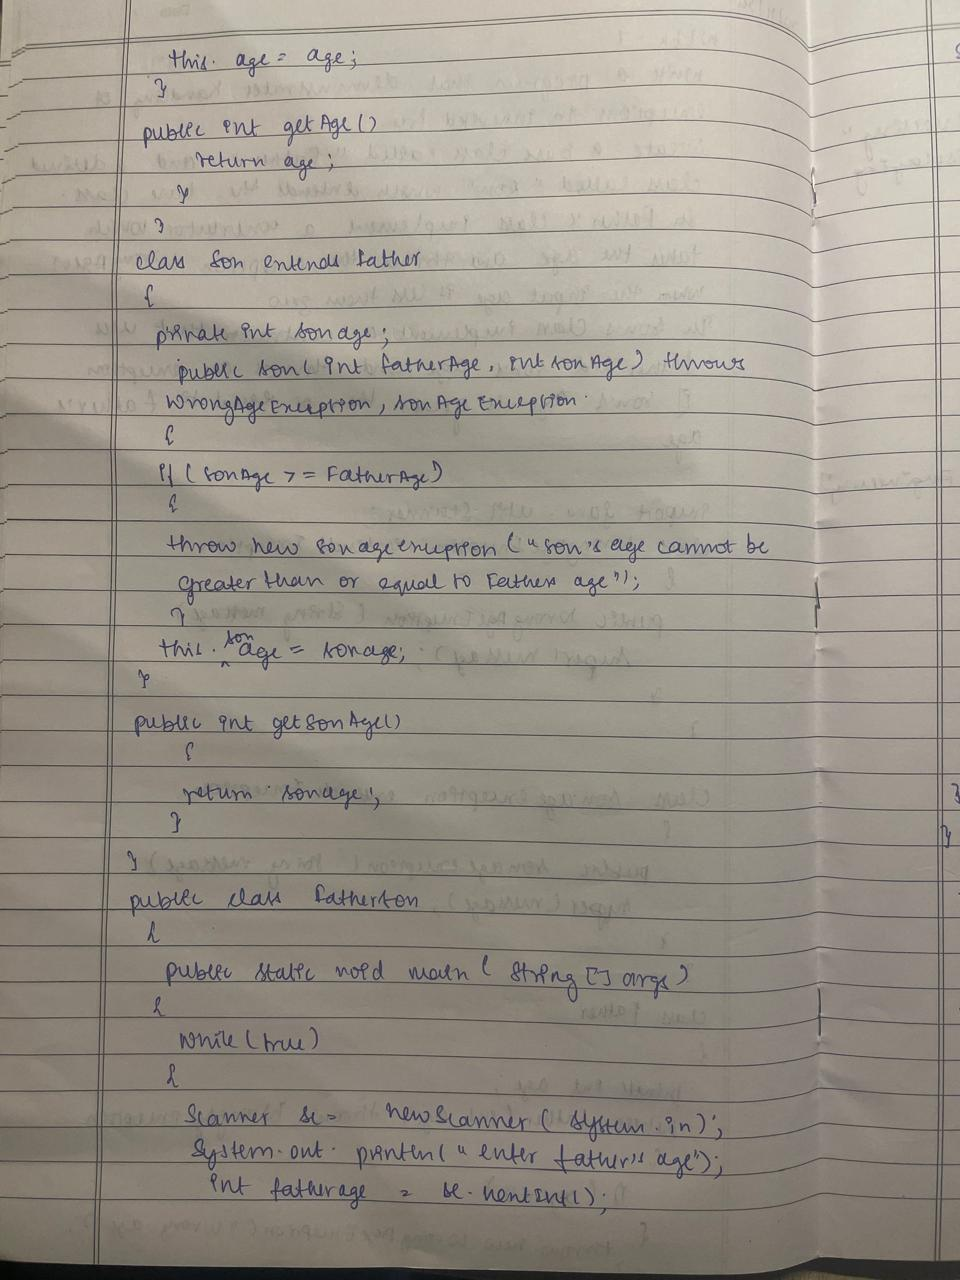 this. age = age;
}
public int getAge()
return age;
}
}
class Son extends Father
{
private int sonage;
public son(int fatherAge, int sonAge) throws
WrongAgeException, sonAgeException
{
if (sonAge >= FatherAge)
{
throw new sonageexception("son's age cannot be
greater than or equal to Fathers age");
}
this. sonage = sonage;
}
public int getsonAge()
{
return sonage;
}
}
public class fatherson
{
public static void main(String[] args)
{
while(true)
{
Scanner sc = new Scanner(System.in);
System.out.println("enter father's age");
int fatherage = sc.nextInt();